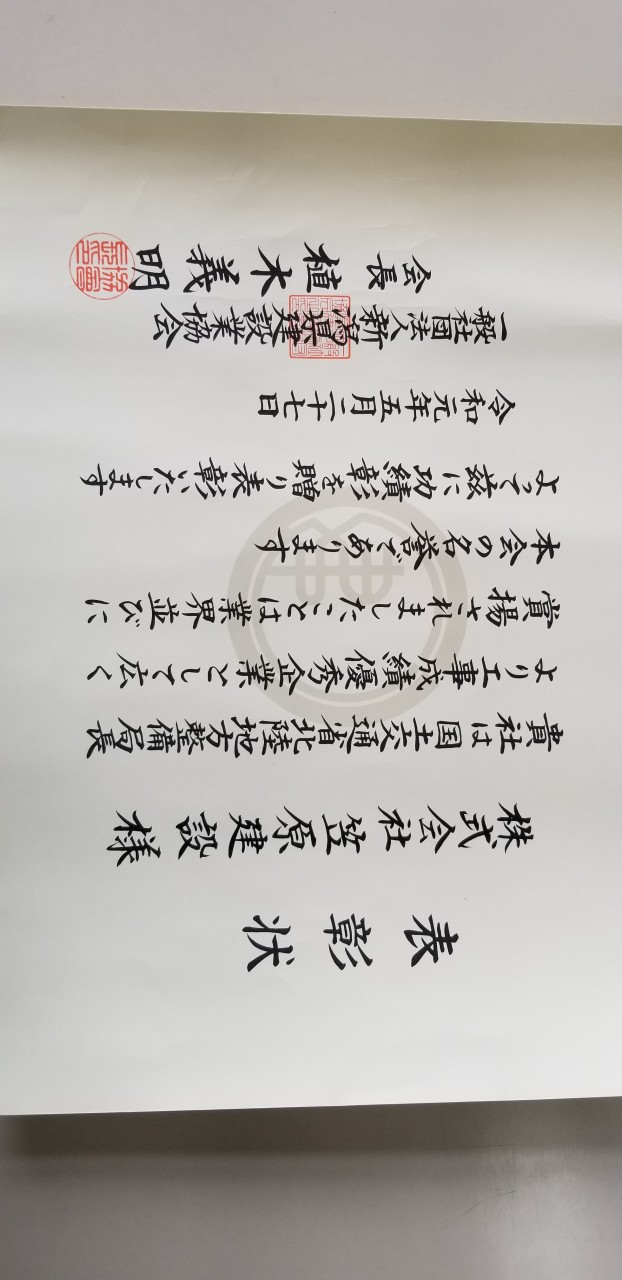 表彰状
株式会社笠原建設様
貴社は国土交通省北陸地方整備局長
より工事成績優秀企業として広く
賞揚されましたことは業界並びに
本会の名誉であります
よって茲に功績彰を贈り表彰いたします
令和元年五月二十七日
一般社団法人新潟県建設業協会
会長 植木義明